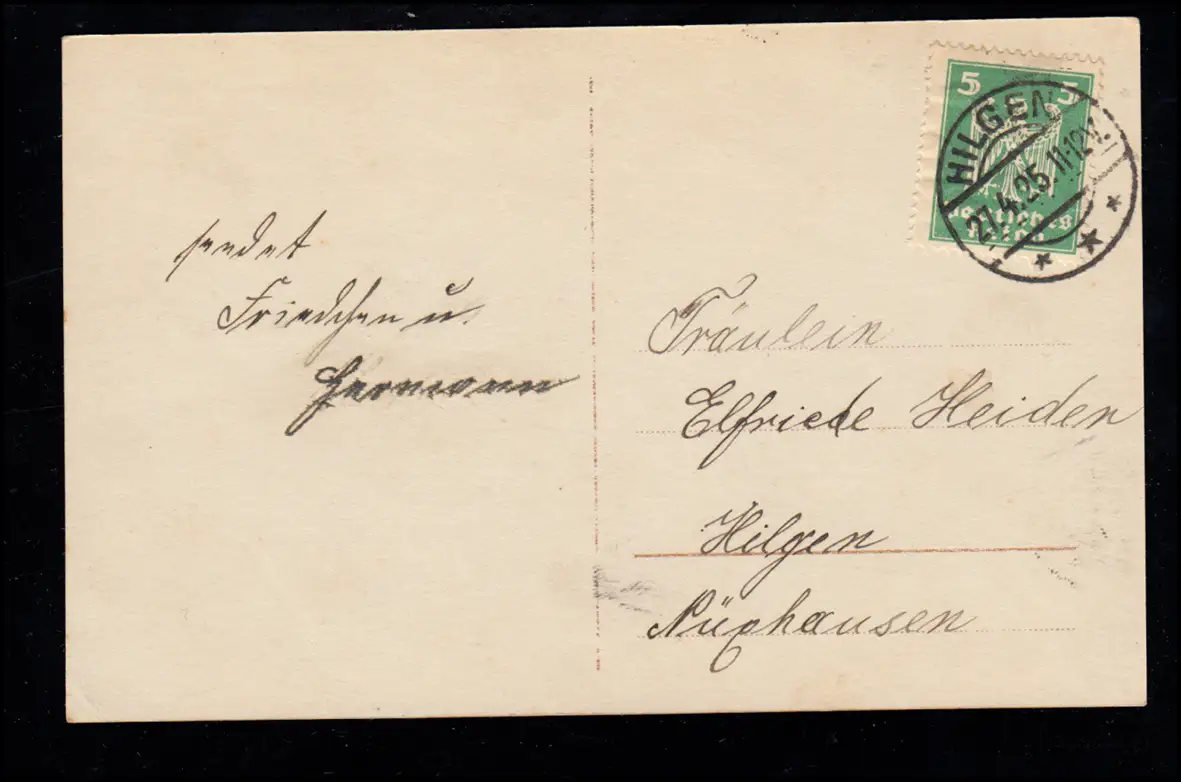 sendet
Friedchen u.
Hermann
5 5
Deutsches
Reich
HILGEN
27.4.25. 11-12 V.
Fräulein
Elfriede Heider
Hilgen
Nüxhausen